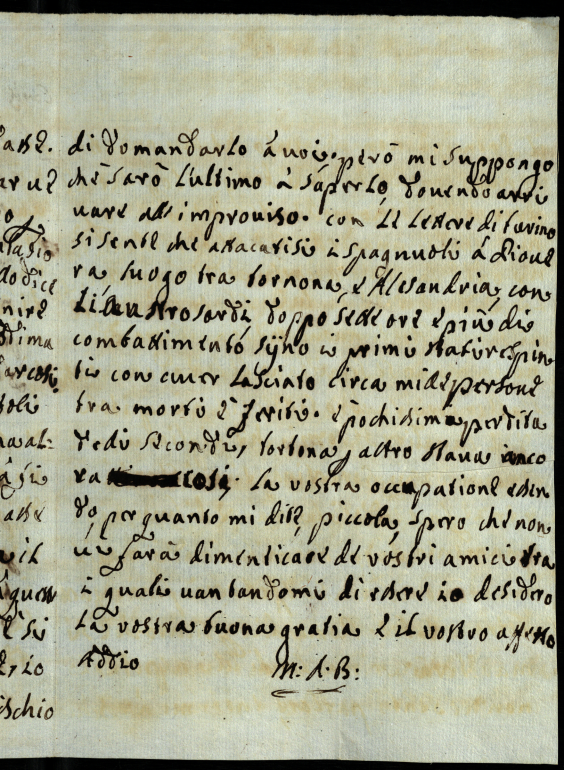 di domandarlo à voi. però mi suppongo
che sarò l'ultimo à saperlo, dovendo arri
vare all improviso. con le lettere di turino
si sente che attacatisi i spagnuoli à
ra luogo tra tornona, e Alesandria, con
li Austrosardi, doppo sette ore e più di
combattimento sijno i primi stati respin
ti con aver lasciato circa mille persone
tra morti e feriti. e pochissima perdita
de di secondi, tortona, altro stava anco
ra così. la vostra occupatione essen
do, per quanto mi dite, piccola, spero che non
vi farà dimenticare de vostri amici tra
i quali vantandomi di essere io desidero
la vostra buona gratia e il vostro affetto
Addio M: A: B:
arcosi
toli
na al=
à si
atte
il
è si
io
ischio